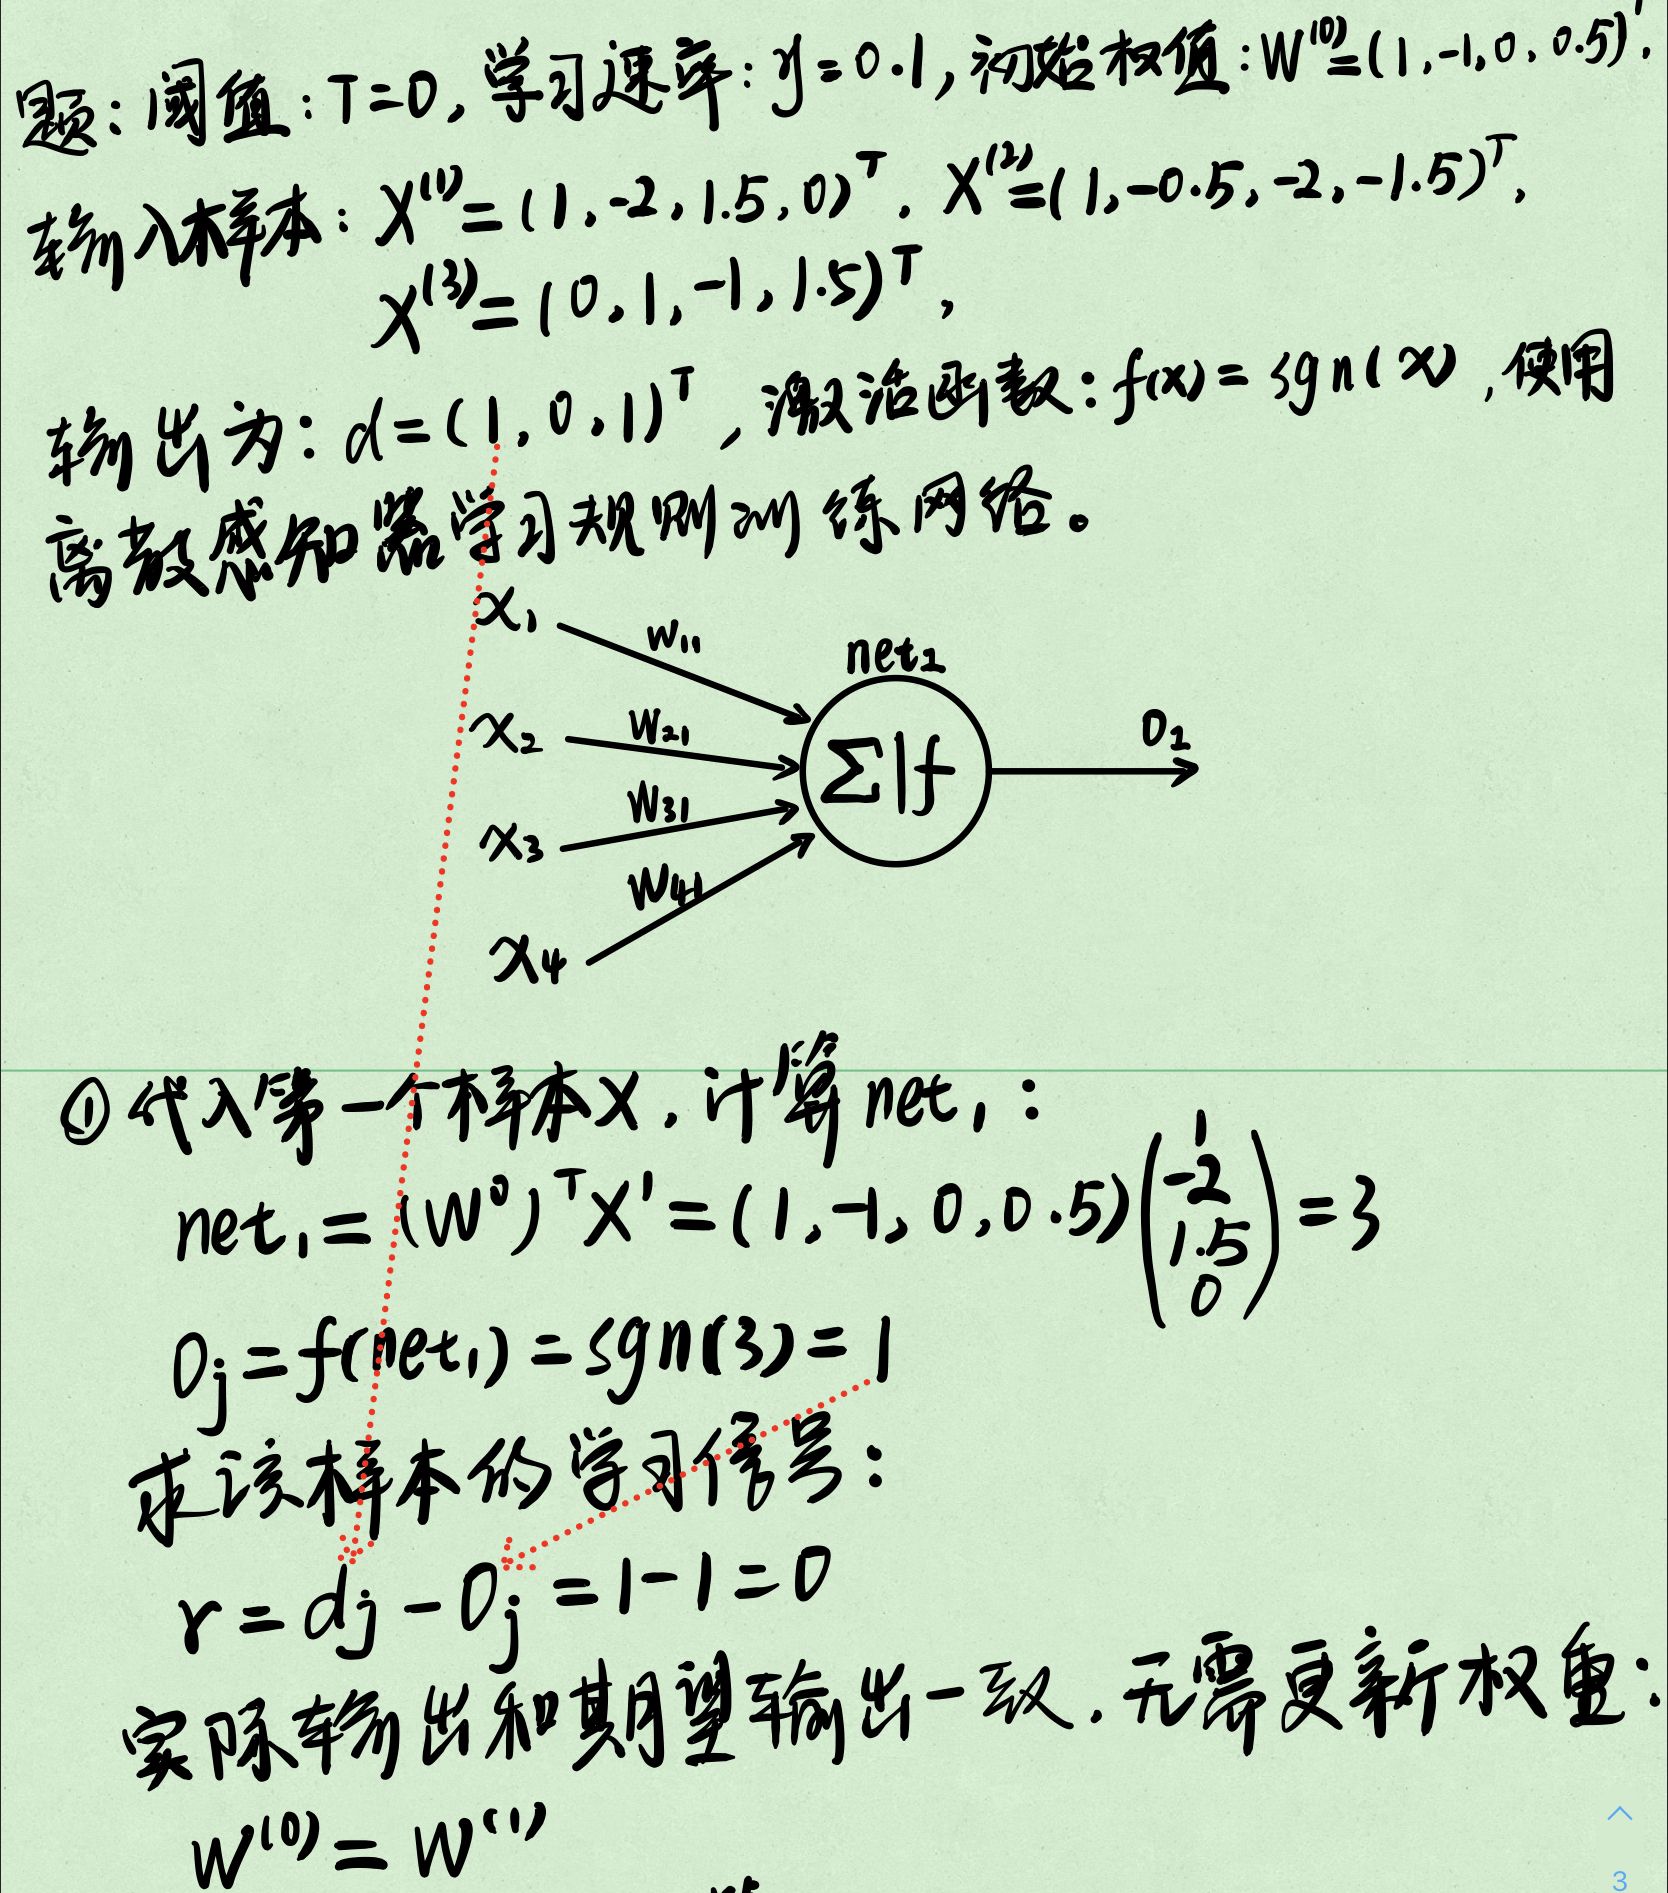 题：阈值：T=0，学习速率：y=0.1，初始权值：W⁽⁰⁾=(1,-1,0,0.5)ᵀ，
输入样本：X⁽¹⁾=(1,-2,1.5,0)ᵀ，X⁽²⁾=(1,-0.5,-2,-1.5)ᵀ，
X⁽³⁾=(0,1,-1,1.5)ᵀ，
输出为：d=(1,0,1)ᵀ，激活函数：f(x)=sgn(x)，使用
离散感知器学习规则训练网络。
x₁ w₁₁ net₁
x₂ w₂₁ Σ|f o₁
x₃ w₃₁
x₄ w₄₁
①代入第一个样本X，计算net₁：
net₁=(W⁰)ᵀX¹=(1,-1,0,0.5)(1 -2 1.5 0)=3
Oj=f(net₁)=sgn(3)=1
求该样本的学习信号：
r=dj-Oj=1-1=0
实际输出和期望输出一致，无需更新权重：
W⁽⁰⁾=W⁽¹⁾
3